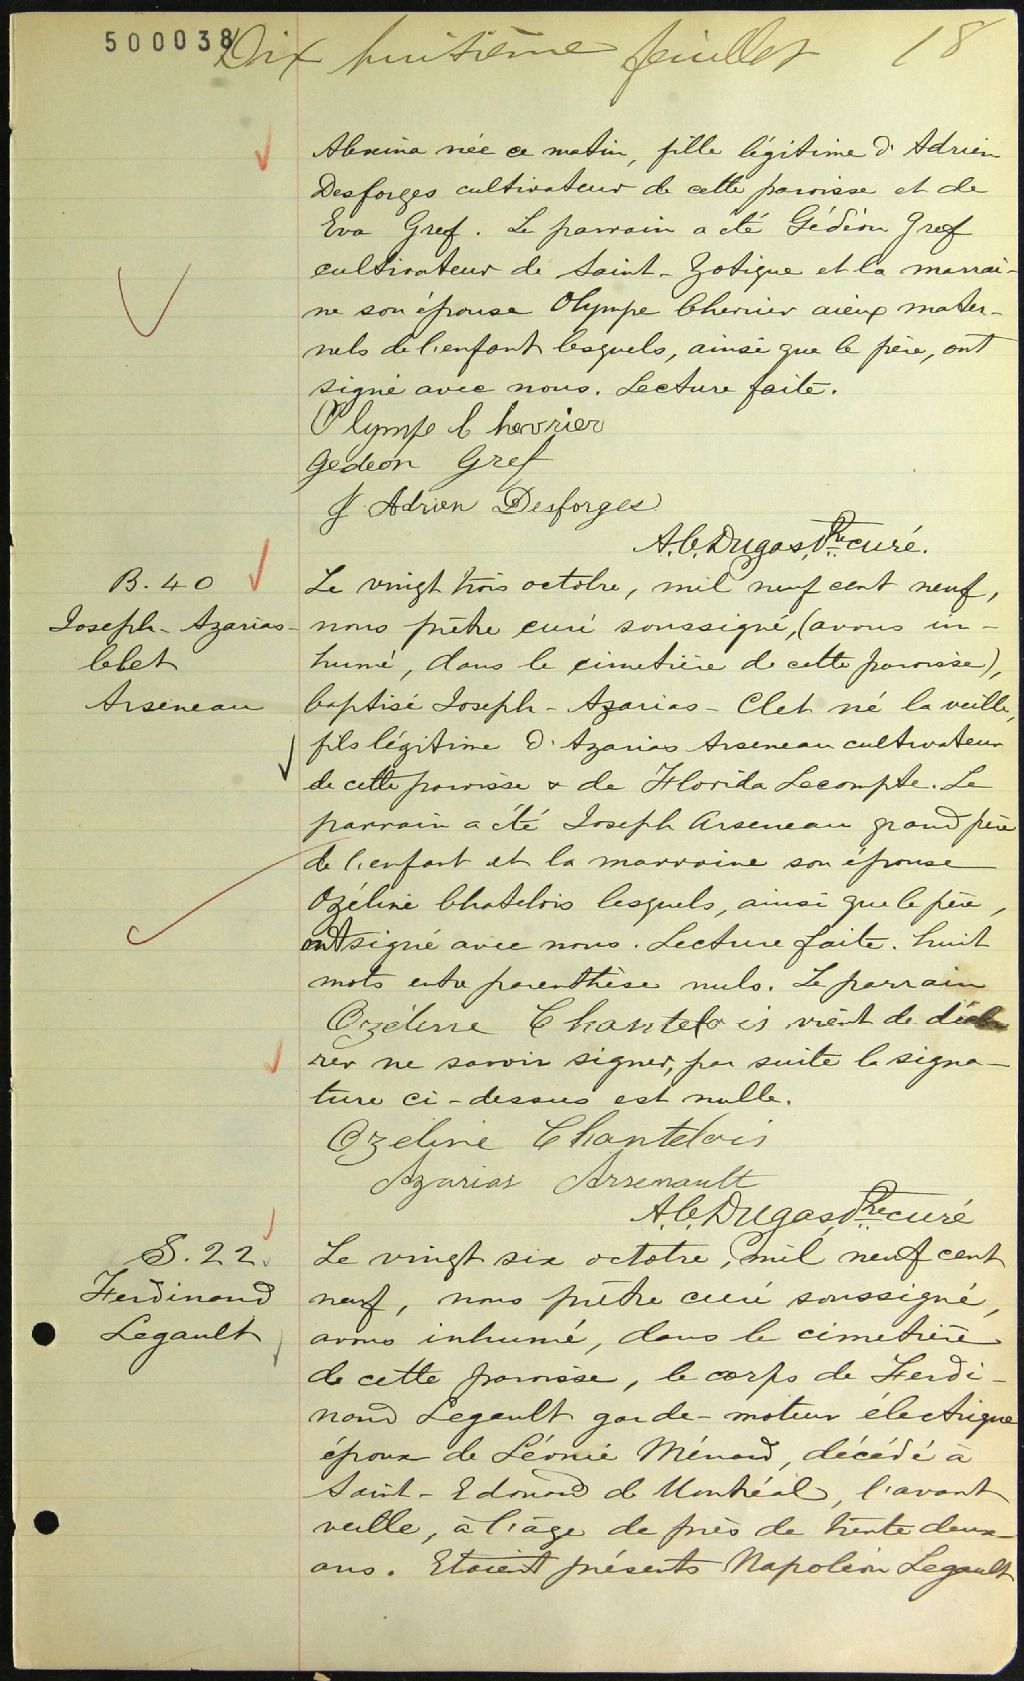 500038 Dix huitième feuillet 18
née ce matin, fille légitime d'Adrien
Desforges cultivateur de cette paroisse et de
Eva Gref. Le parrain a été Gédéon Gref
cultivateur de Saint-Zotique et la marrai-
ne son épouse Olympe Chevrier aieux mater-
nels de l'enfant lesquels, ainsi que le père, ont
signé avec nous. Lecture faite.
Olympe Chevrier
Gedeon Gref
J Adrien Desforges
A.C. Dugas, Ptre curé.
B. 40
Joseph-Azarias-
Clet
Arseneau
Le vingt trois octobre, mil neuf cent neuf,
nous prêtre curé soussigné, (avons in-
humé, dans le cimetière de cette paroisse),
baptisé Joseph-Azarias-Clet né la veille,
fils légitime d'Azarias Arseneau cultivateur
de cette paroisse & de Florida Lecompte. Le
parrain a été Joseph Arseneau grand père
de l'enfant et la marraine son épouse
Ozéline Chatelois lesquels, ainsi que le père,
ont signé avec nous. Lecture faite. huit
mots entre parenthèse nuls. Le parrain
Ozéline Chantelois vient de décla
rer ne savoir signer, par suite la signa-
ture ci-dessus est nulle.
Ozeline Chantelois
Azarias Arsenault
A.C. Dugas, Ptre curé
S. 22
Ferdinand
Legault
Le vingt six octobre, mil neuf cent
neuf, nous prêtre curé soussigné,
avons inhumé, dans le cimetière
de cette paroisse, le corps de Ferdi-
nand Legault garde-moteur électrique
époux de Léonie Ménard, décédé à
Saint-Edouard de Montréal, l'avant
veille, à l'âge de près de trente deux
ans. Etaient présents Napoléon Legault